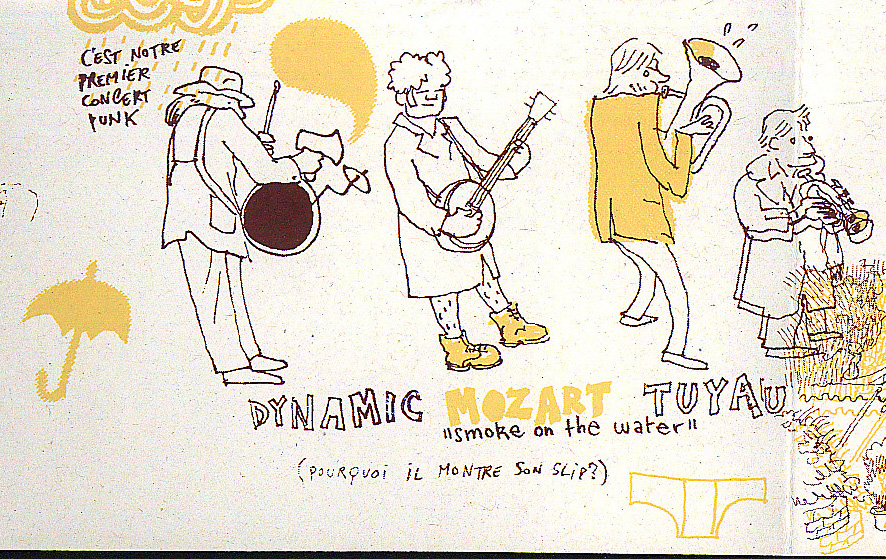 C'EST NOTRE
PREMIER
CONCERT
PUNK
DYNAMIC MOZART TUYAU
"smoke on the water"
(POURQUOI IL MONTRE SON SLIP?)